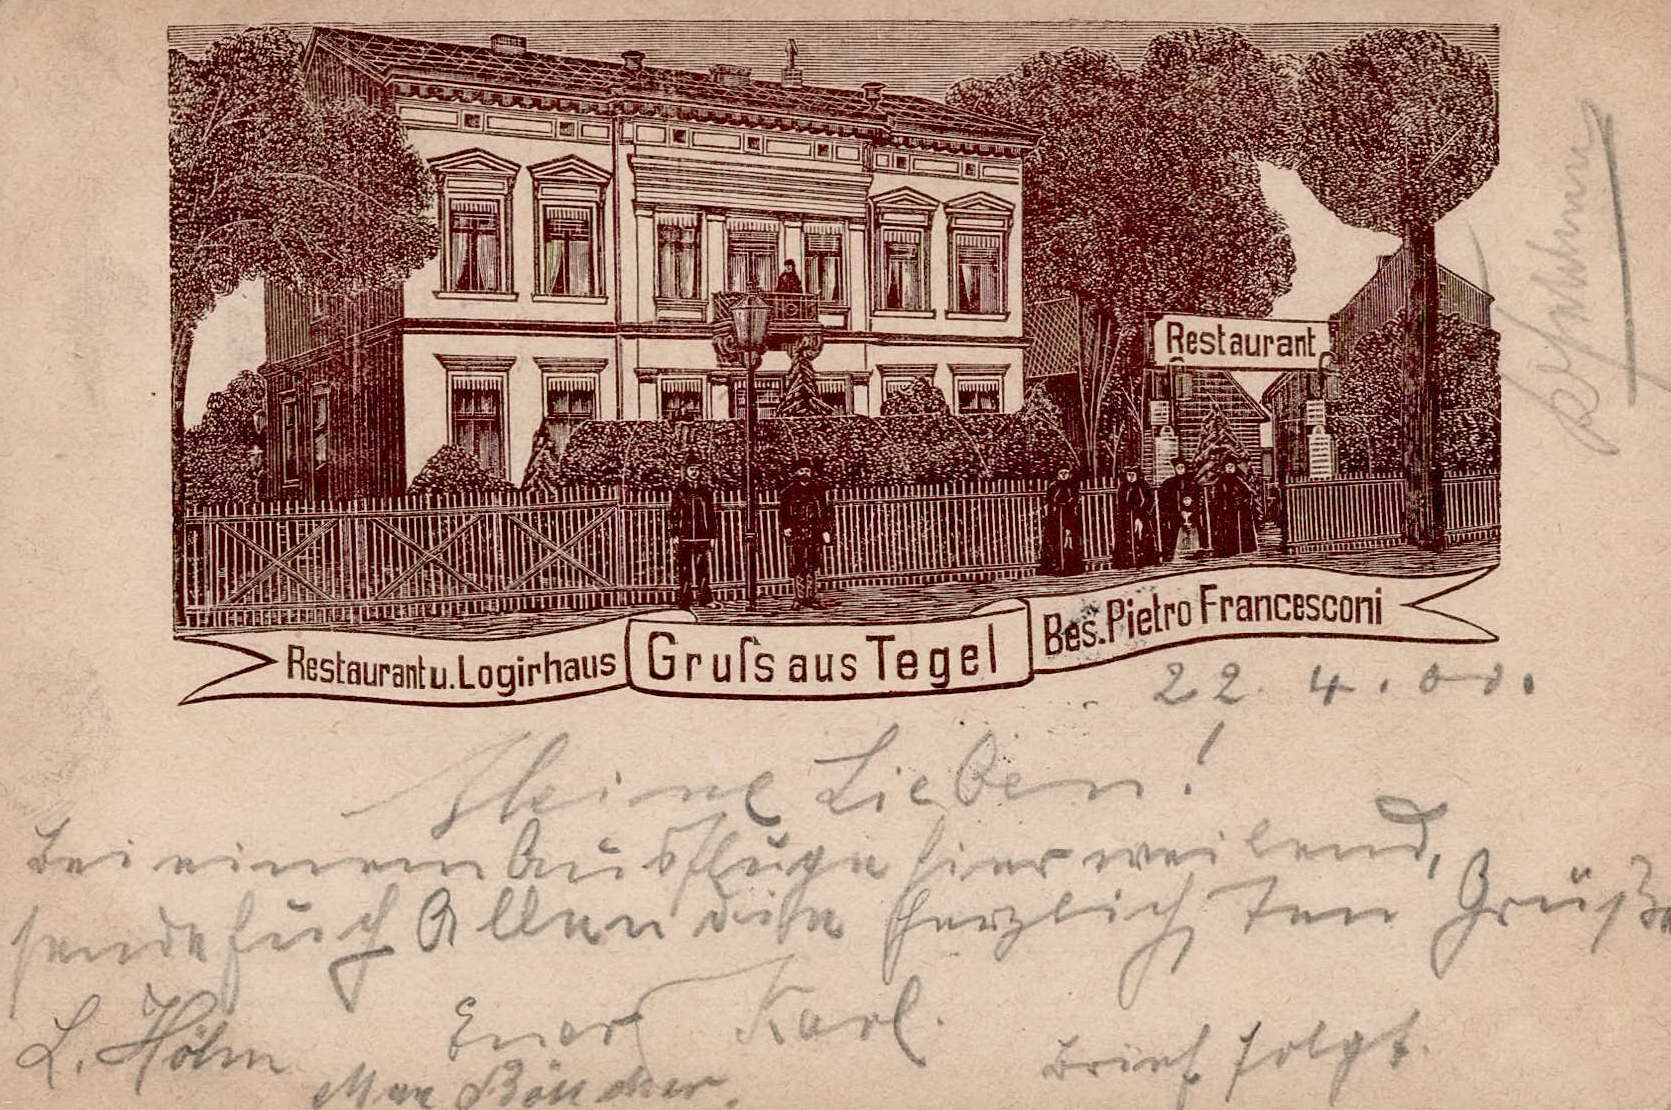 Restaurant
Restaurant u. Logirhaus
Gruſs aus Tegel
Bes. Pietro Francesconi
22. 4. 00.
Meine Lieben!
Bei einem Ausfluge hier weilend,
sende Euch Allen die herzlichsten Grüße
Euer Karl.
L. Höhn
Max Böttcher.
Brief folgt.